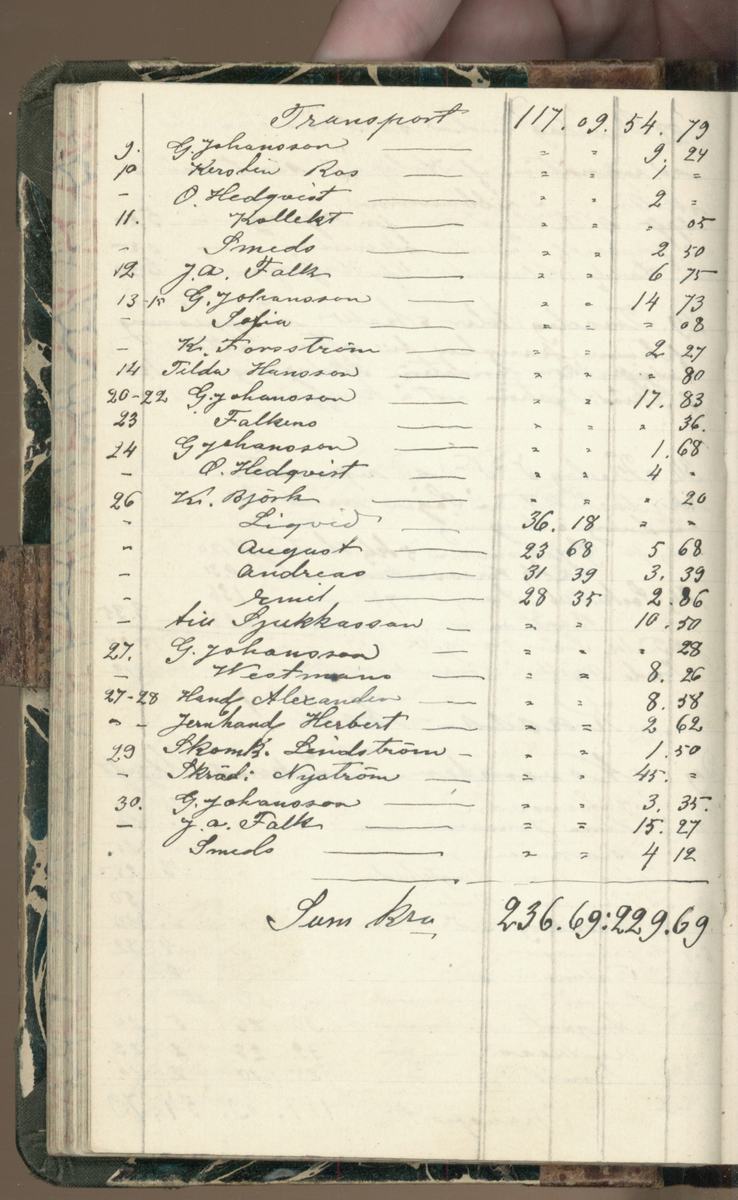 Transport 117. 09. 54. 79
9. G. Johansson — " " 9. 24
10 Kerstin Ros — " " 1 =
– O. Hedqvist — " " 2 =
11. Kollekt — " " " 05
– Smeds — " " 2 50
12 J. A. Falk — " " 6 75
13-15 G. Johansson — " " 14 73
– Sofia — = = = 08
– K. Forsström — " " 2 27
14 Tilda Hansson — " " " 80
20-22 G. Johansson — " " 17. 83
23 Falkens — " " " 36.
24 G Johansson — " " 1. 68
– O. Hedqvist — " " 4 "
26 K. Björk — " " " 20
" Liqvid — 36. 18 " "
" August — 23 68 5 68
– Andreas — 31 39 3. 39
– Emil — 28 35 2. 86
– till Sjukkassan — " " 10. 50
27. G. Johansson — " " " 28
– Westmans — " " 8. 26
27-28 Hand Alexander — " " 8. 58
" - Jernhand Herbert — " = 2 62
29 Skomk. Lindström — " " 1. 50
– Skräd: Nyström — = " 45. =
30. G. Johansson — " " 3. 35.
– J. A. Falk — = = 15. 27
Smeds — " = 4 12
Sum kra 236. 69: 229. 69